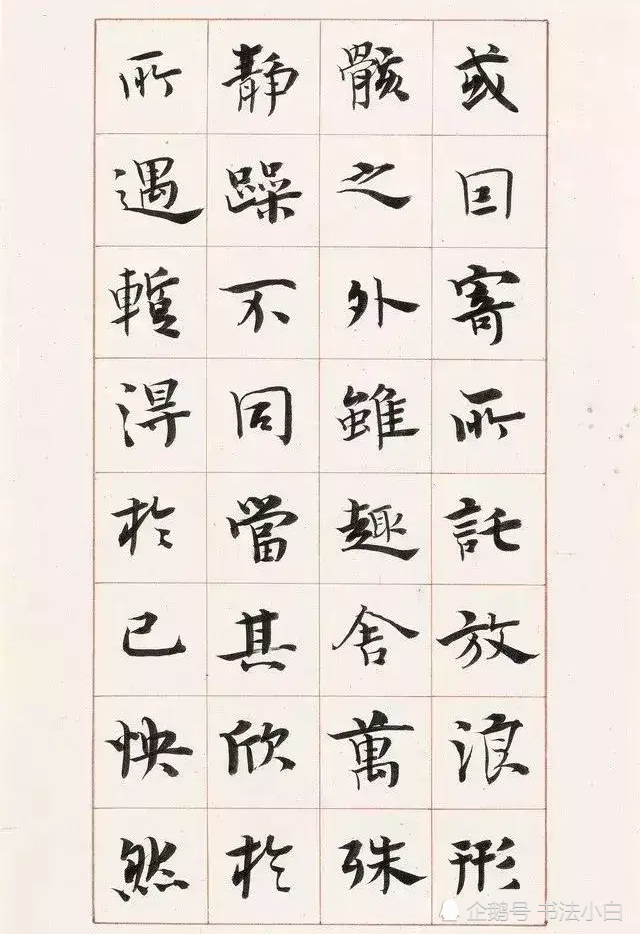 或囙寄所託放浪形
骸之外雖趣舍萬殊
静躁不同當其欣於
所遇暫得於己怏然
企鹅号 书法小白